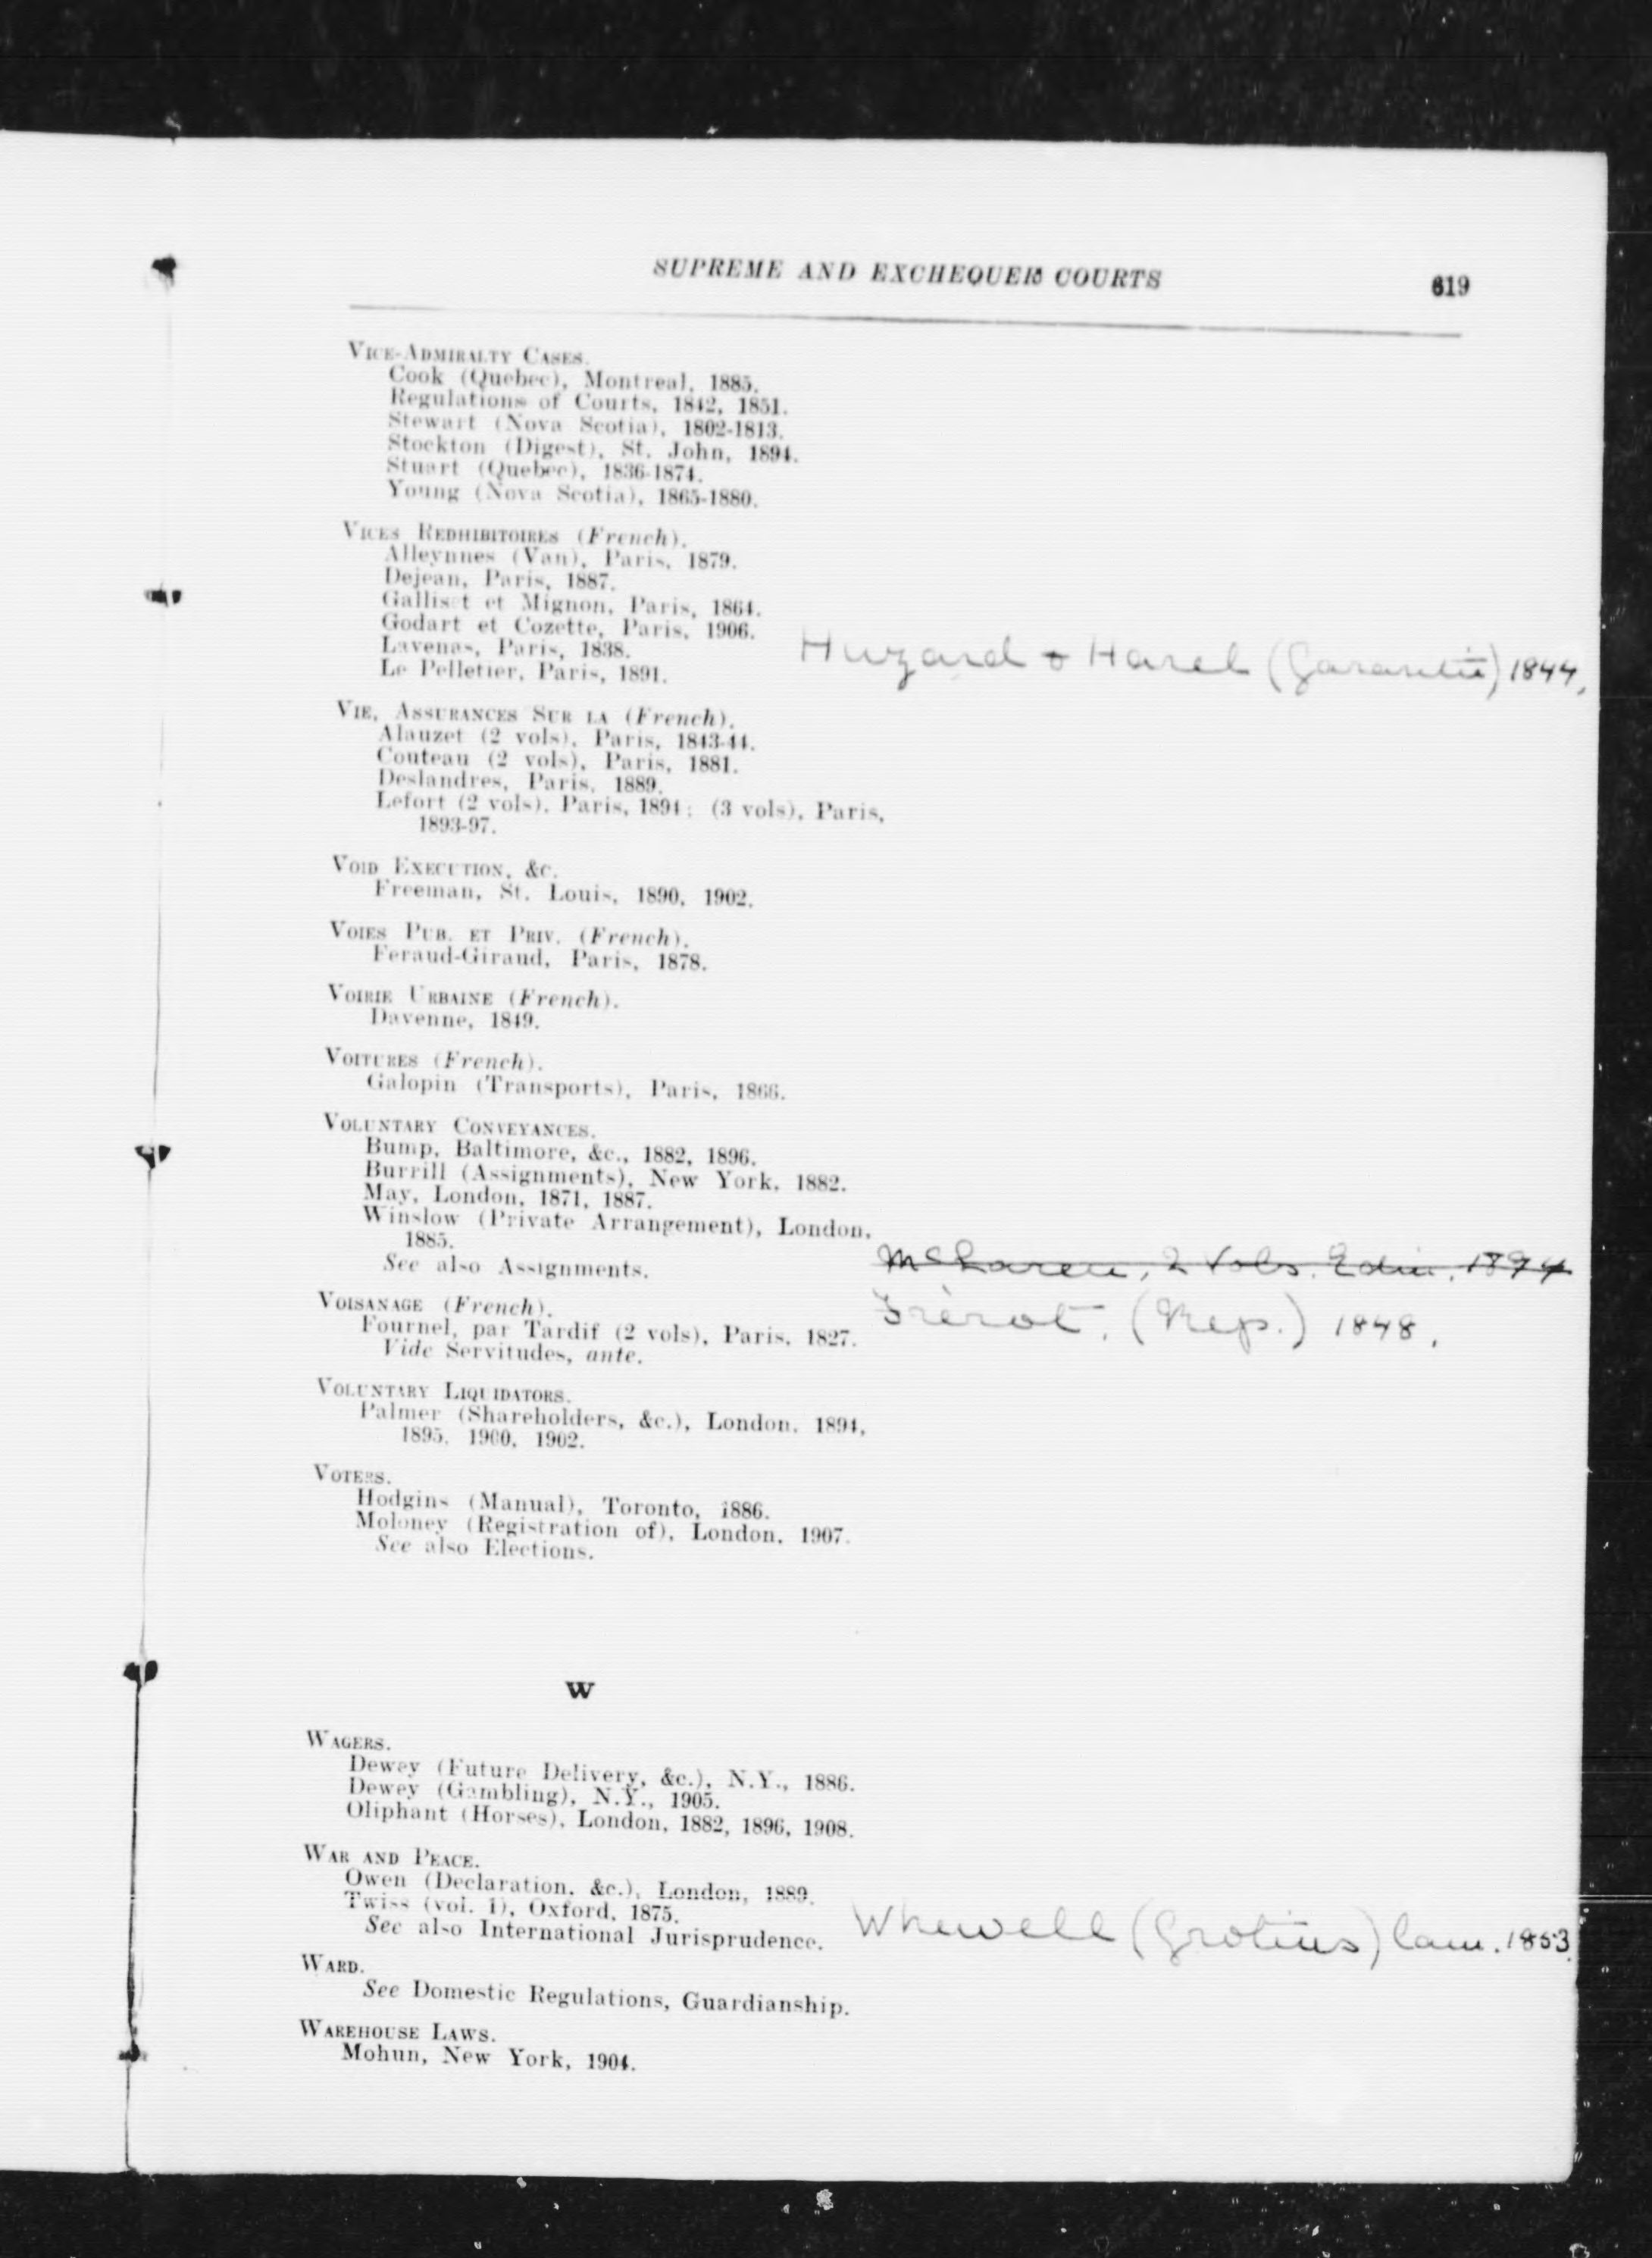 SUPREME AND EXCHEQUER COURTS 619
VICE-ADMIRALTY CASES.
Cook (Quebec), Montreal, 1885.
Regulations of Courts, 1842, 1851.
Stewart (Nova Scotia), 1802-1813.
Stockton (Digest), St. John, 1894.
Stuart (Quebec), 1836-1874.
Young (Nova Scotia), 1865-1880.
VICES REDHIBITOIRES (French).
Alleynnes (Van), Paris, 1879.
Dejean, Paris, 1887.
Galliset et Mignon, Paris, 1864.
Godart et Cozette, Paris, 1906.
Lavenas, Paris, 1838.
Le Pelletier, Paris, 1891.
Huzard & Harel (Garantie) 1844,
VIE, ASSURANCES SUR LA (French).
Alauzet (2 vols), Paris, 1843-44.
Couteau (2 vols), Paris, 1881.
Deslandres, Paris, 1889.
Lefort (2 vols), Paris, 1894; (3 vols), Paris,
1893-97.
VOID EXECUTION, &C.
Freeman, St. Louis, 1890, 1902.
VOIES PUB. ET PRIV. (French).
Feraud-Giraud, Paris, 1878.
VOIRIE URBAINE (French).
Davenne, 1849.
VOITURES (French).
Galopin (Transports), Paris, 1866.
VOLUNTARY CONVEYANCES.
Bump, Baltimore, &c., 1882, 1896.
Burrill (Assignments), New York, 1882.
May, London, 1871, 1887.
Winslow (Private Arrangement), London,
1885.
See also Assignments.
McLaren, 2 Vols. Edin. 1894
VOISANAGE (French).
Fournel, par Tardif (2 vols), Paris, 1827.
Vide Servitudes, ante.
Frérot, (Rep.) 1848,
VOLUNTARY LIQUIDATORS.
Palmer (Shareholders, &c.), London, 1894,
1895, 1900, 1902.
VOTERS.
Hodgins (Manual), Toronto, 1886.
Moloney (Registration of), London, 1907.
See also Elections.
W
WAGERS.
Dewey (Future Delivery, &c.), N.Y., 1886.
Dewey (Gambling), N.Y., 1905.
Oliphant (Horses), London, 1882, 1896, 1908.
WAR AND PEACE.
Owen (Declaration, &c.), London, 1889.
Twiss (vol. 1), Oxford, 1875.
See also International Jurisprudence.
Whewell (Grotius) Cam. 1853.
WARD.
See Domestic Regulations, Guardianship.
WAREHOUSE LAWS.
Mohun, New York, 1904.